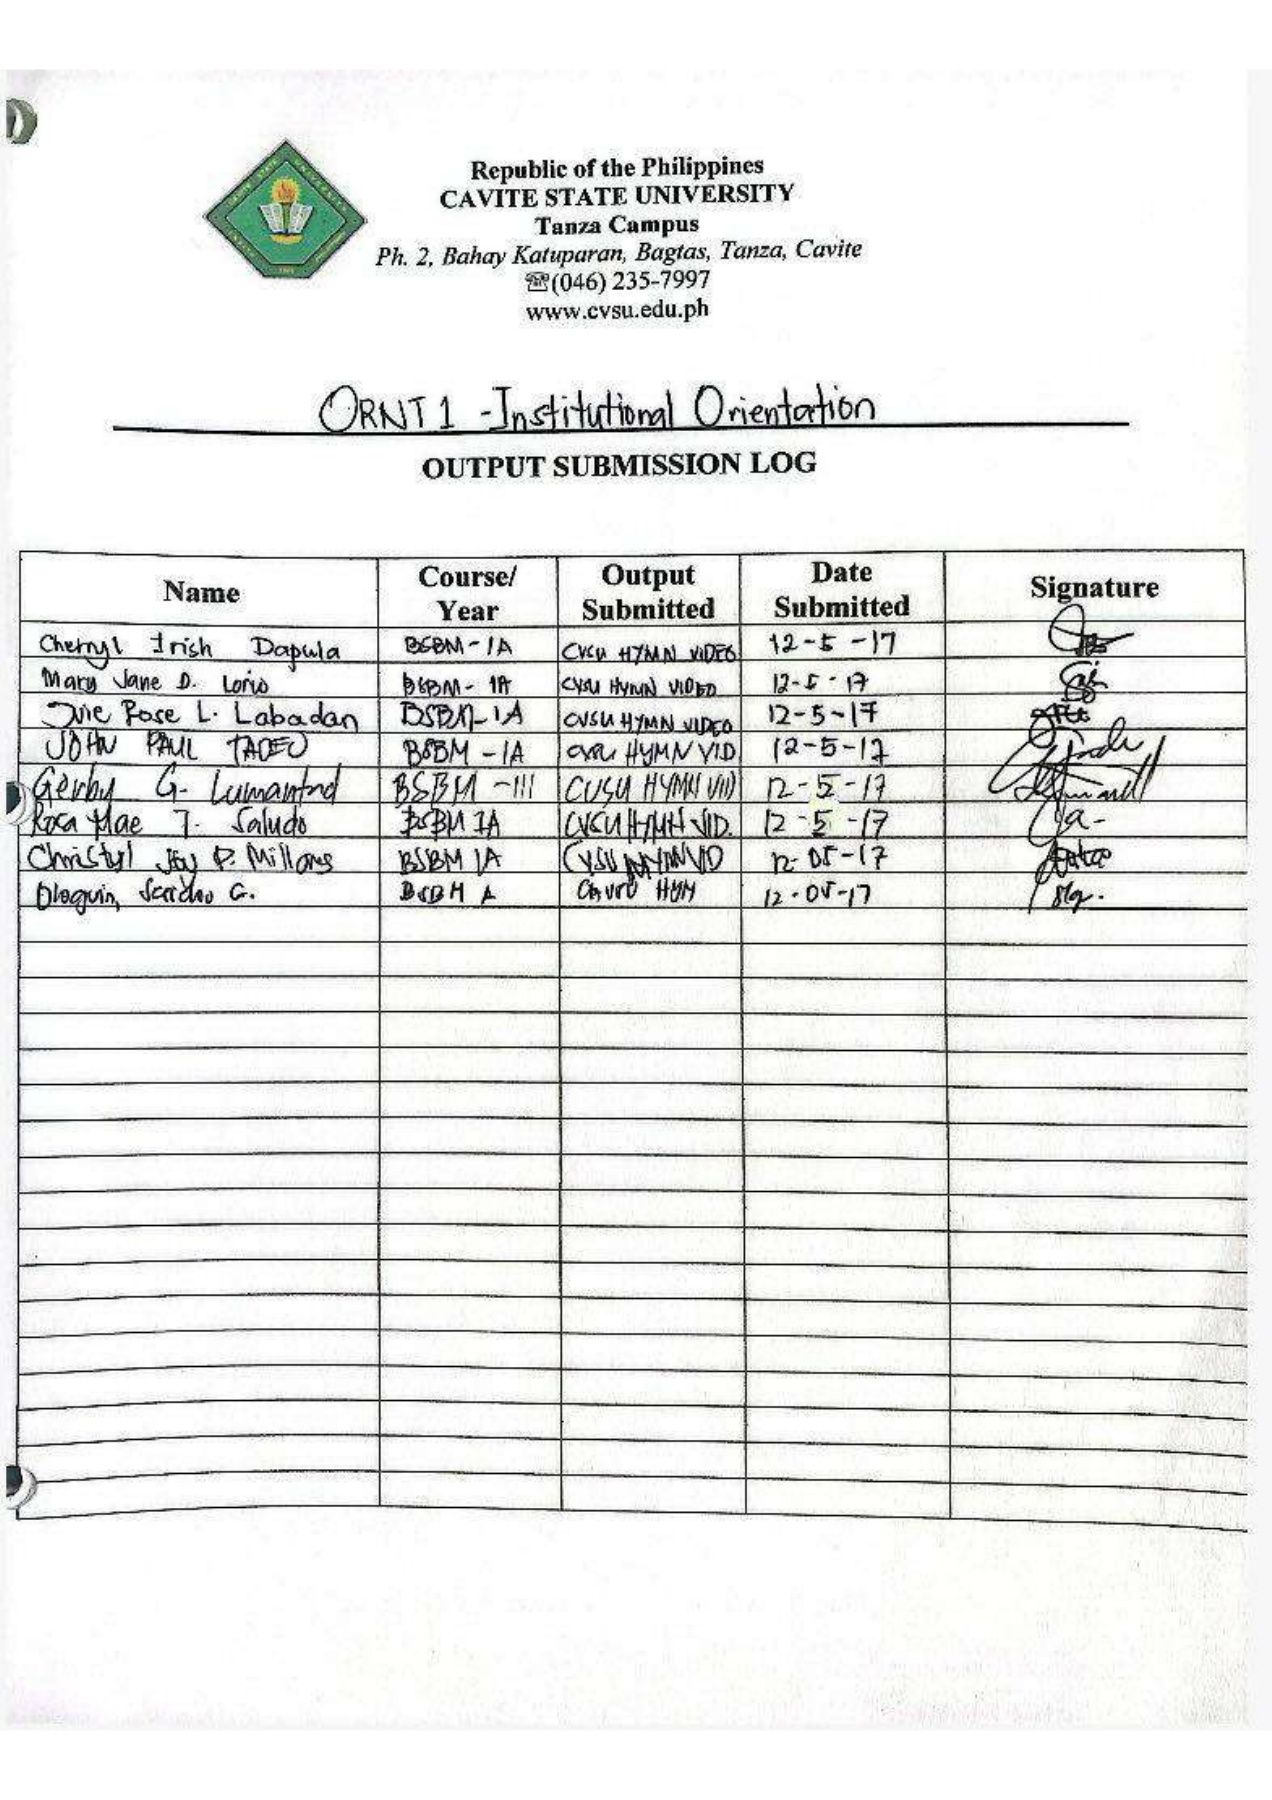 Republic of the Philippines
CAVITE STATE UNIVERSITY
Tanza Campus
Ph. 2, Bahay Katuparan, Bagtas, Tanza, Cavite
☎(046) 235-7997
www.cvsu.edu.ph
ORNT 1 - Institutional Orientation
OUTPUT SUBMISSION LOG
Name Course/ Year Output Submitted Date Submitted Signature
Cherryl Irish Dapula BSBM - 1A CVSU HYMN VIDEO 12-5-17
Mary Jane D. Lorio BSBM - 1A CVSU HYMN VIDEO 12-5-17
Rose L. Labadan BSBM - 1A CVSU HYMN VIDEO 12-5-17
JOHN PAUL TADEO BSBM - 1A CVSU HYMN VID 12-5-17
Gerby G. BSBM - III CVSU HYMN VID 12-5-17
Rosa Mae T. Saludo BSBM 1A CVSU HYMN VID. 12-5-17
Christyl Joy P. BSBM 1A CVSU VID 12-05-17
G. 12-05-17